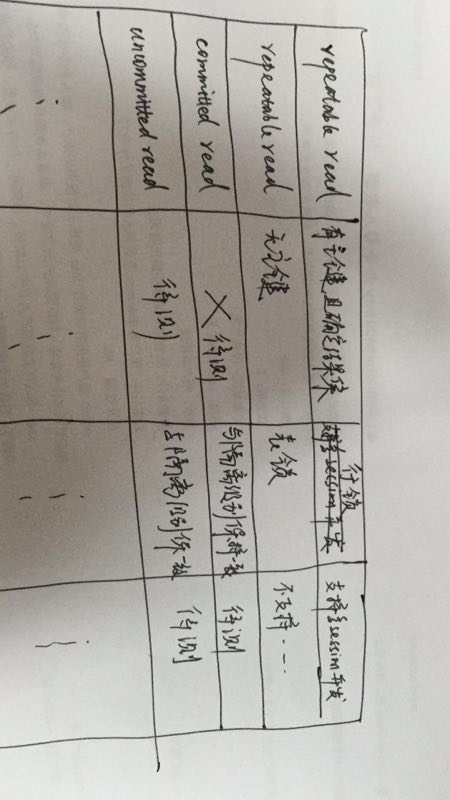 repeatable read
有主键且确定结果集
行锁
支持多session并发
repeatable read
无主键
表锁
不支持....
committed read
待测
与隔离级别保持一致
待测
uncommitted read
待测
与隔离级别保一致
待测